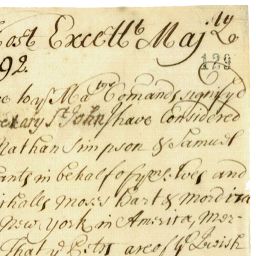 ost Excell.t Maj.ty
129
92.
yo.r Ma.ty Comands signifyd
cretary S.t John have considered
Nathan Simpson & Samuel
ants in behalf of ymselves and
challs Moses Hart & Mordica
New York in America, Mer-
That ye Pet.rs are of ye Jewish